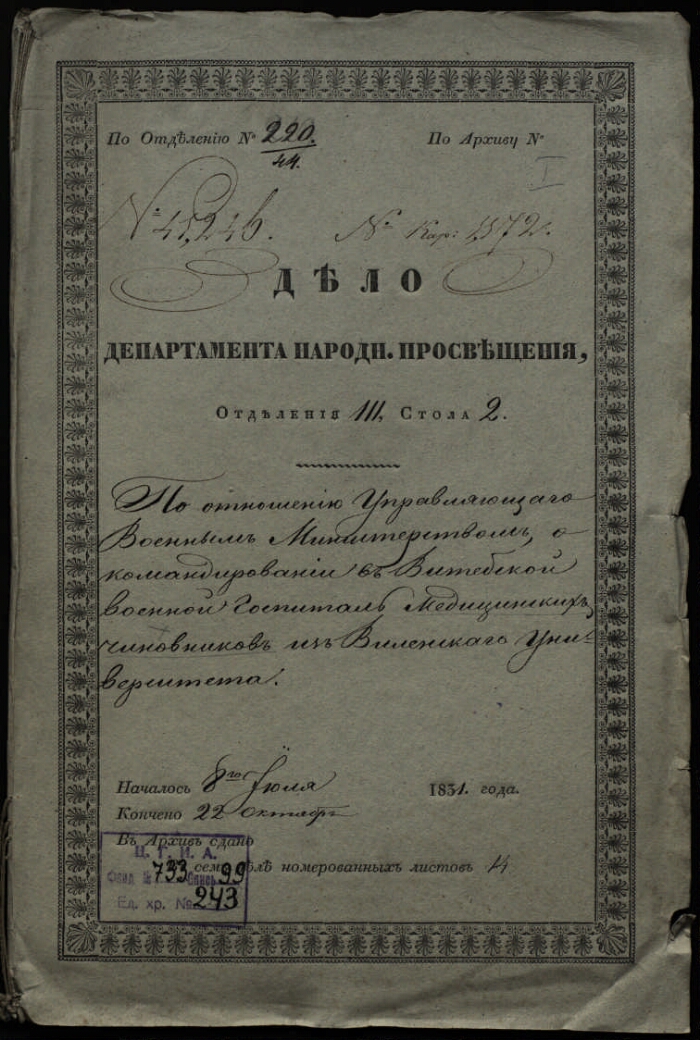 По Отдѣленію № 220. По Архиву №
44. I
№ 41,246. № Кар: 1,872.
ДѢЛО
ДЕПАРТАМЕНТА НАРОДН. ПРОСВѢЩЕНІЯ,
Отдѣленія III, Стола 2.
По отношенію Управляющаго
Военнымъ Министерствомъ, о
командированіи въ Витебской
военной Госпиталь Медицинскихъ
чиновниковъ изъ Виленскаго Уни-
верситета.
Началось 8го Іюля 1831. года.
Кончено 22 октября
Въ Архивъ сдано
Ц. Г. И. А.
Фонд № 733 Опись 99 семъ дѣлѣ номерованныхъ листовъ 14
Ед. хр. № 243